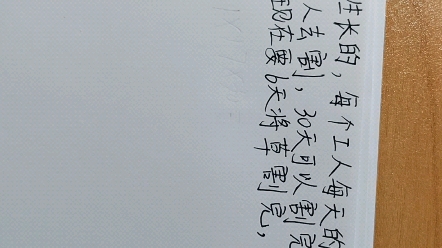 生长的，每个工人每天的
人去割，30天可以割完
现在要6天将草割完，